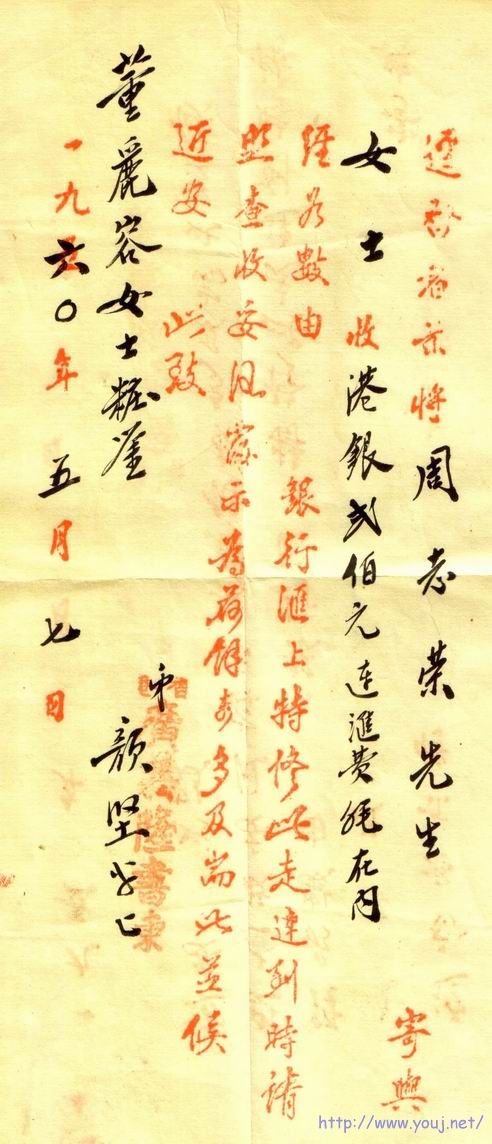 逕啓者茲將周志榮先生 寄與
女士收港銀弍伯元連滙費在內
經如數由 銀行滙上特修此走達到時請
照查收妥示為荷餘多及耑此並候
近安 此致
董麗容女士粧鑒
弟 顏堅
一九六〇年五月七日
隆書柬
http://www.youj.net/